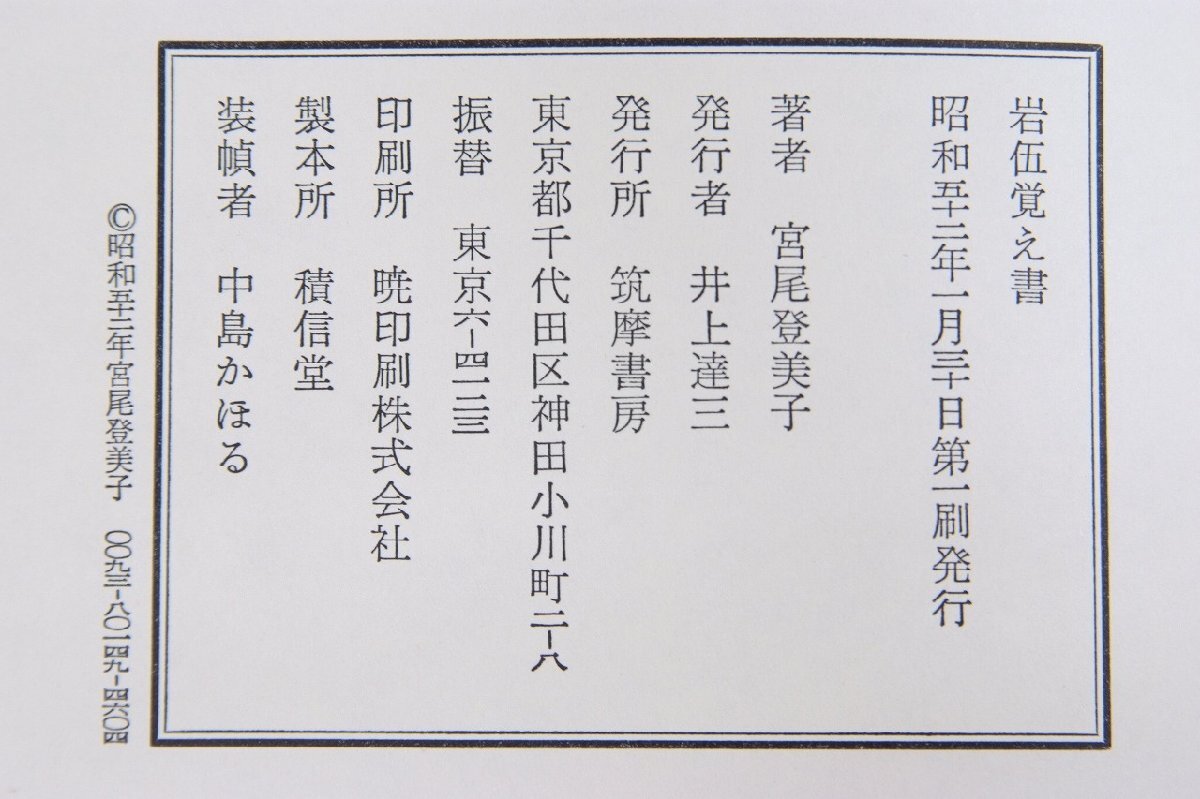 岩伍覚え書
昭和五十二年一月三十日第一刷発行
著者 宮尾登美子
発行者 井上達三
発行所 筑摩書房
東京都千代田区神田小川町二-八
振替 東京六-四一二三
印刷所 暁印刷株式会社
製本所 積信堂
装幀者 中島かほる
©昭和五十二年宮尾登美子 〇〇九三-八〇一四九-四六〇四